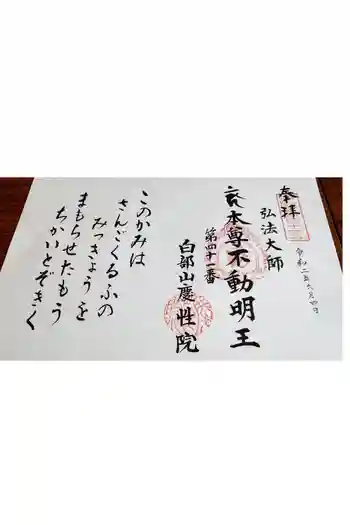 奉拝
弘法大師
令和二年六月四日
本尊不動明王
第四十一番
白部山慶性院
このかみは
さんごくるふの
みつきょうを
まもらせたもう
ちかいとぞきく